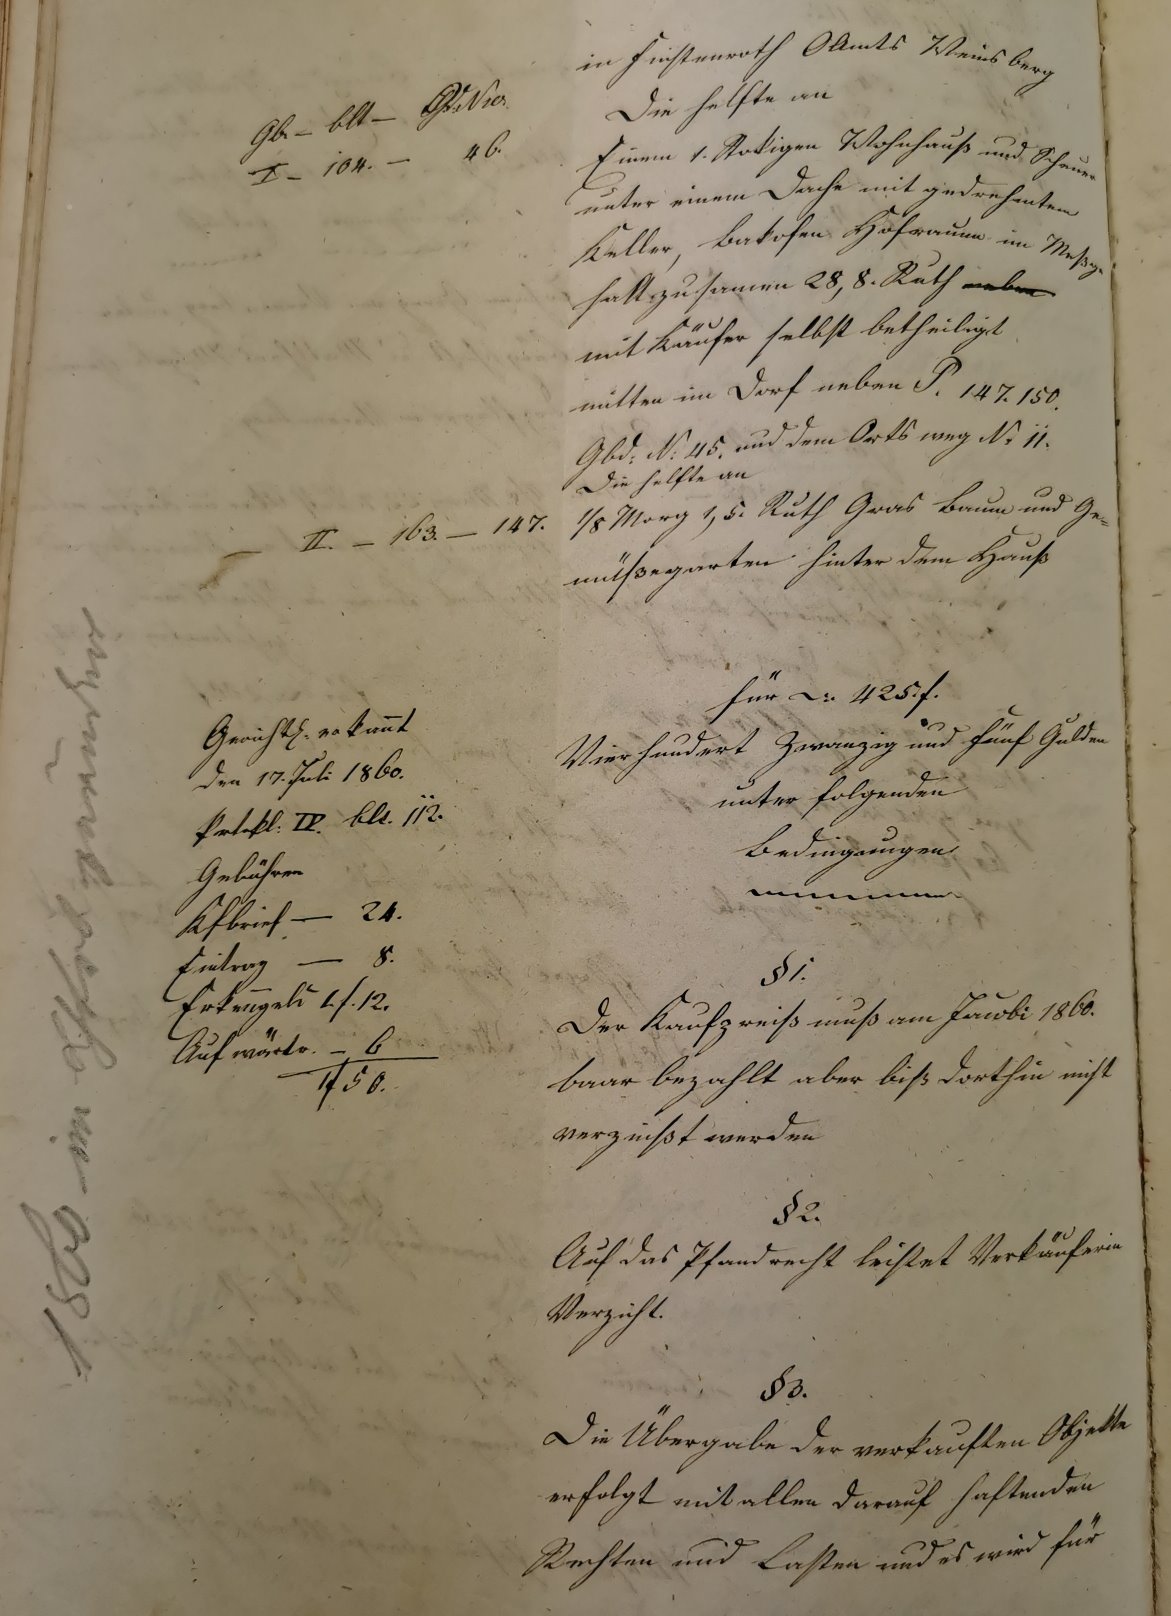 in Finsterroth OAmts Weinsberg
Gb. – blt –
I – 104. – 46.
Die helfte an
Einem 1. Stokigen Wohnhauß und Scheuer
unter einem Dache mit gedrehmtem
Keller, Bakofen Hofraum im Meßge-
halt zusamen 28,8. Ruth neben
mit Käufer selbst betheiligt
mitten im Dorf neben P. 147. 150.
Gbd: N: 45. und dem Orts weg N: 11.
Die helfte an
– II. – 163. – 147.
1/8 Morg 1,5. Ruth Gras Baum und Ge-
müßegarten hinter dem Hauß
für –: 425 f.
Vierhundert Zwanzig und fünf Gulden
unter folgenden
Bedingungen
Gerichtl: erkannt
den 17. Juli 1860.
Protokl: IV. blt. 112.
Gebühren
Kfbrief — 24.
Eintrag — 8.
Erkenngeld 1 f. 12.
Aufwärtr. – 6
1 f 50.
§ 1.
Der Kaufpreiß muß am Jacobi 1860.
baar bezahlt aber biß dorthin nicht
verzinßt werden
§ 2.
Auf das Pfandrecht leistet Verkäuferin
Verzicht.
§ 3.
Die Übergabe der verkauften Objekte
erfolgt mit allen darauf haftenden
Rechten und Lasten und es wird für
1860 im